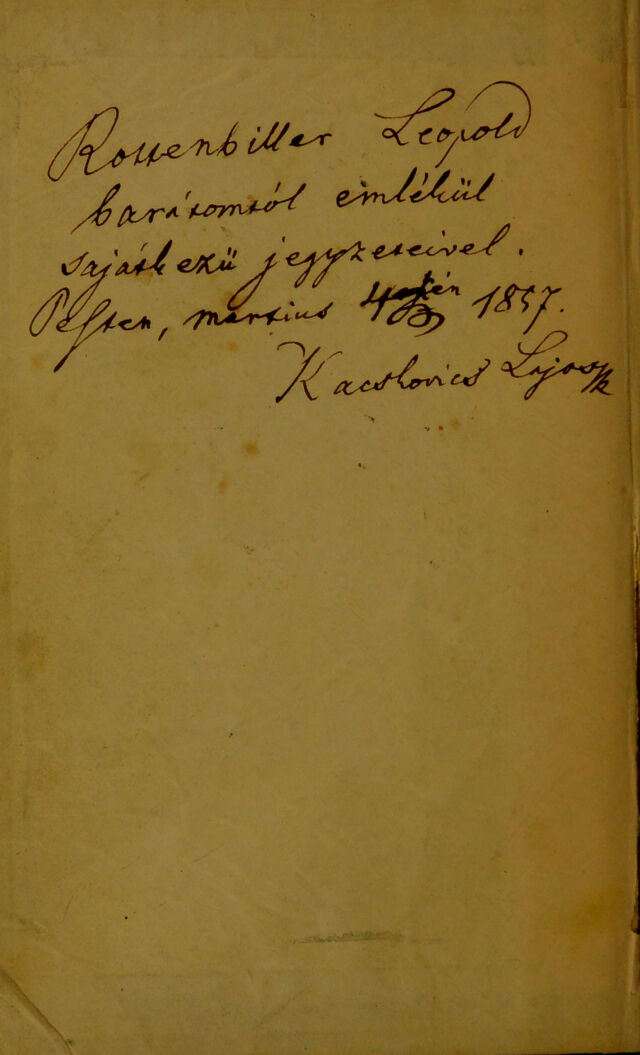 Rottenbiller Leopold
barátomtól emlékül
sajátkezü jegyzeteivel.
Pesten, martius 4én 1857.
Kacskovics Lajos